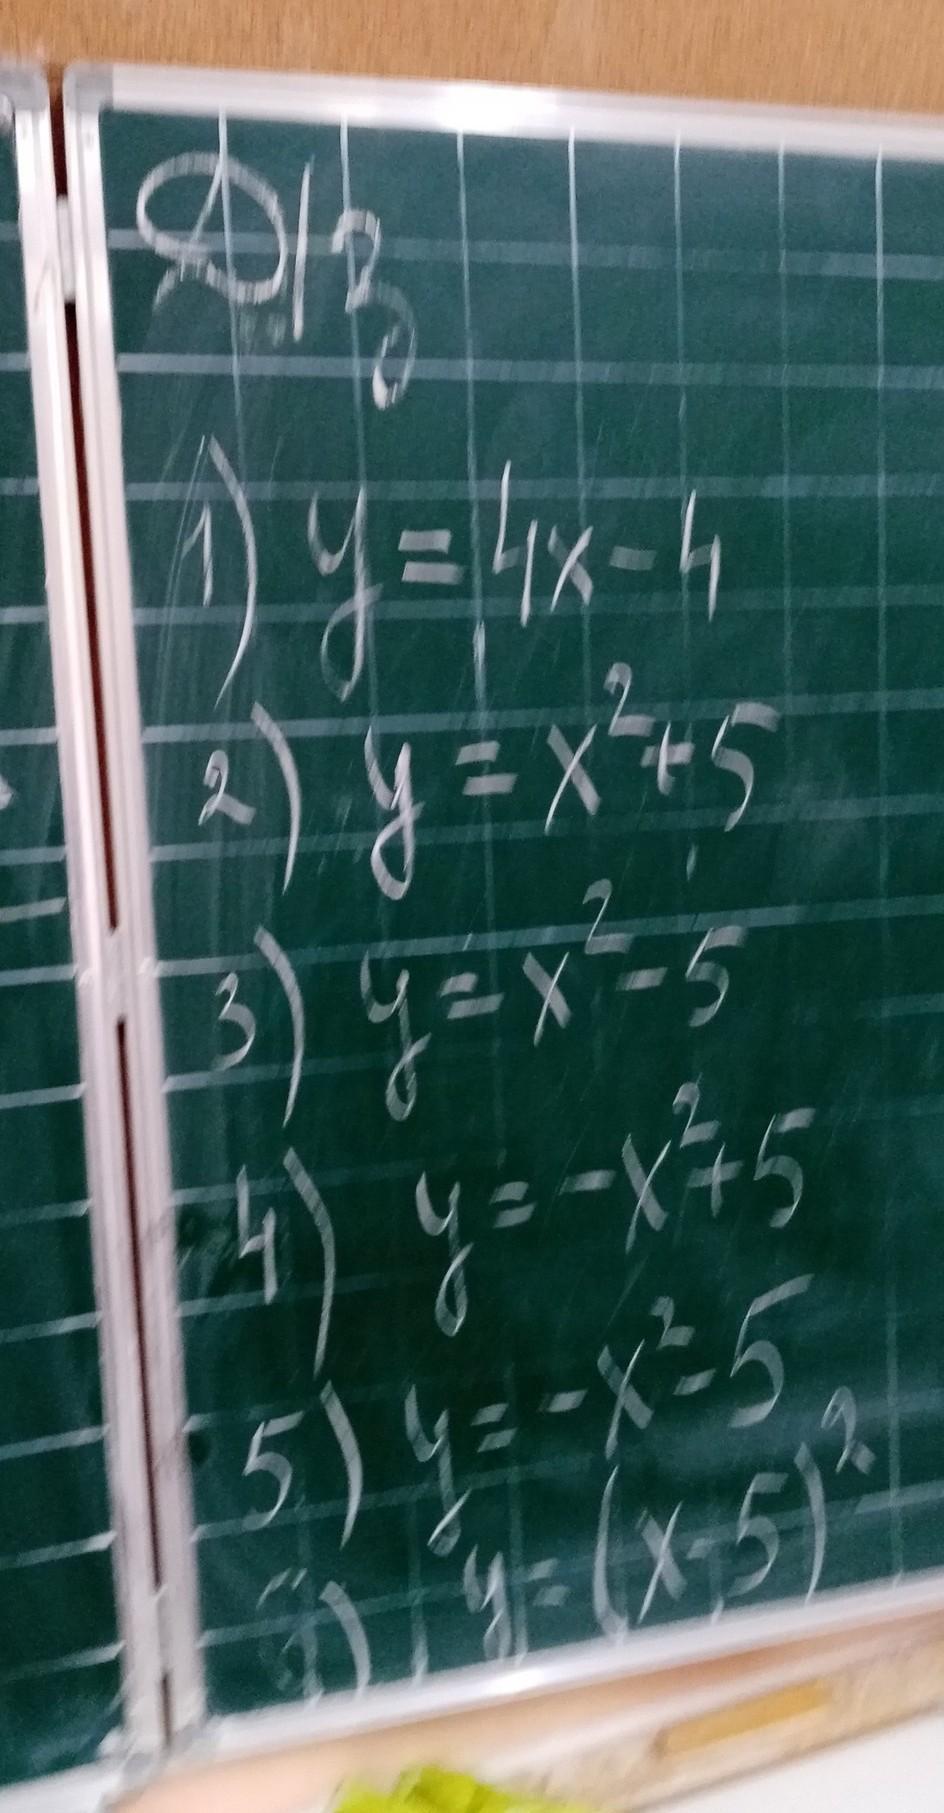 Д/З
1) y = 4x - 4
2) y = x² + 5
3) y = x² - 5
4) y = -x² + 5
5) y = -x² - 5
) y = (x-5)²